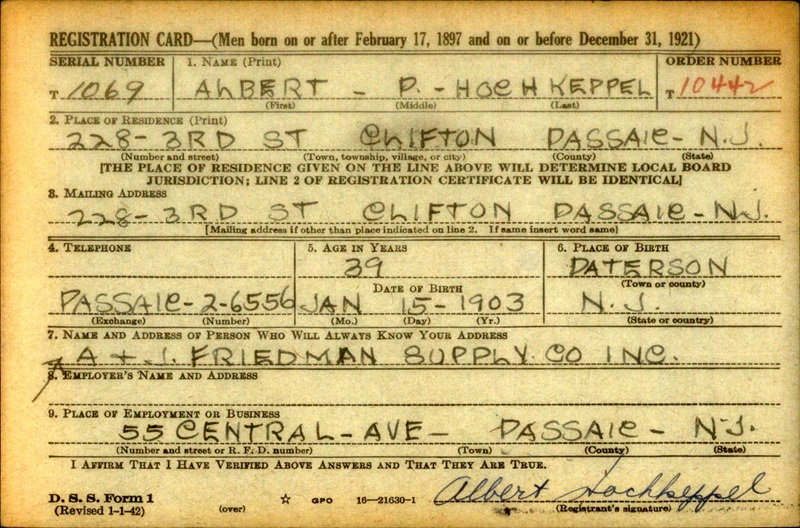 REGISTRATION CARD—(Men born on or after February 17, 1897 and on or before December 31, 1921)
SERIAL NUMBER 1. NAME (Print) ORDER NUMBER
T 1069 ALBERT - P. - HOCHKEPPEL T 10442
(First) (Middle) (Last)
2. PLACE OF RESIDENCE (Print)
228- 3RD ST CLIFTON PASSAIC- N.J.
(Number and street) (Town, township, village, or city) (County) (State)
[THE PLACE OF RESIDENCE GIVEN ON THE LINE ABOVE WILL DETERMINE LOCAL BOARD
JURISDICTION; LINE 2 OF REGISTRATION CERTIFICATE WILL BE IDENTICAL]
3. MAILING ADDRESS
228- 3RD ST CLIFTON PASSAIC- N.J.
[Mailing address if other than place indicated on line 2. If same insert word same]
4. TELEPHONE 5. AGE IN YEARS 6. PLACE OF BIRTH
39 PATERSON
DATE OF BIRTH (Town or county)
PASSAIC-2-6556 JAN 15- 1903 N. J.
(Exchange) (Number) (Mo.) (Day) (Yr.) (State or country)
7. NAME AND ADDRESS OF PERSON WHO WILL ALWAYS KNOW YOUR ADDRESS
A + J. FRIEDMAN SUPPLY CO INC.
8. EMPLOYER'S NAME AND ADDRESS
9. PLACE OF EMPLOYMENT OR BUSINESS
55 CENTRAL- AVE- PASSAIC- N.J.
(Number and street or R. F. D. number) (Town) (County) (State)
I AFFIRM THAT I HAVE VERIFIED ABOVE ANSWERS AND THAT THEY ARE TRUE.
D. S. S. Form 1 GPO 16—21630-1 Albert Hochkeppel
(Revised 1-1-42) (over) (Registrant's signature)